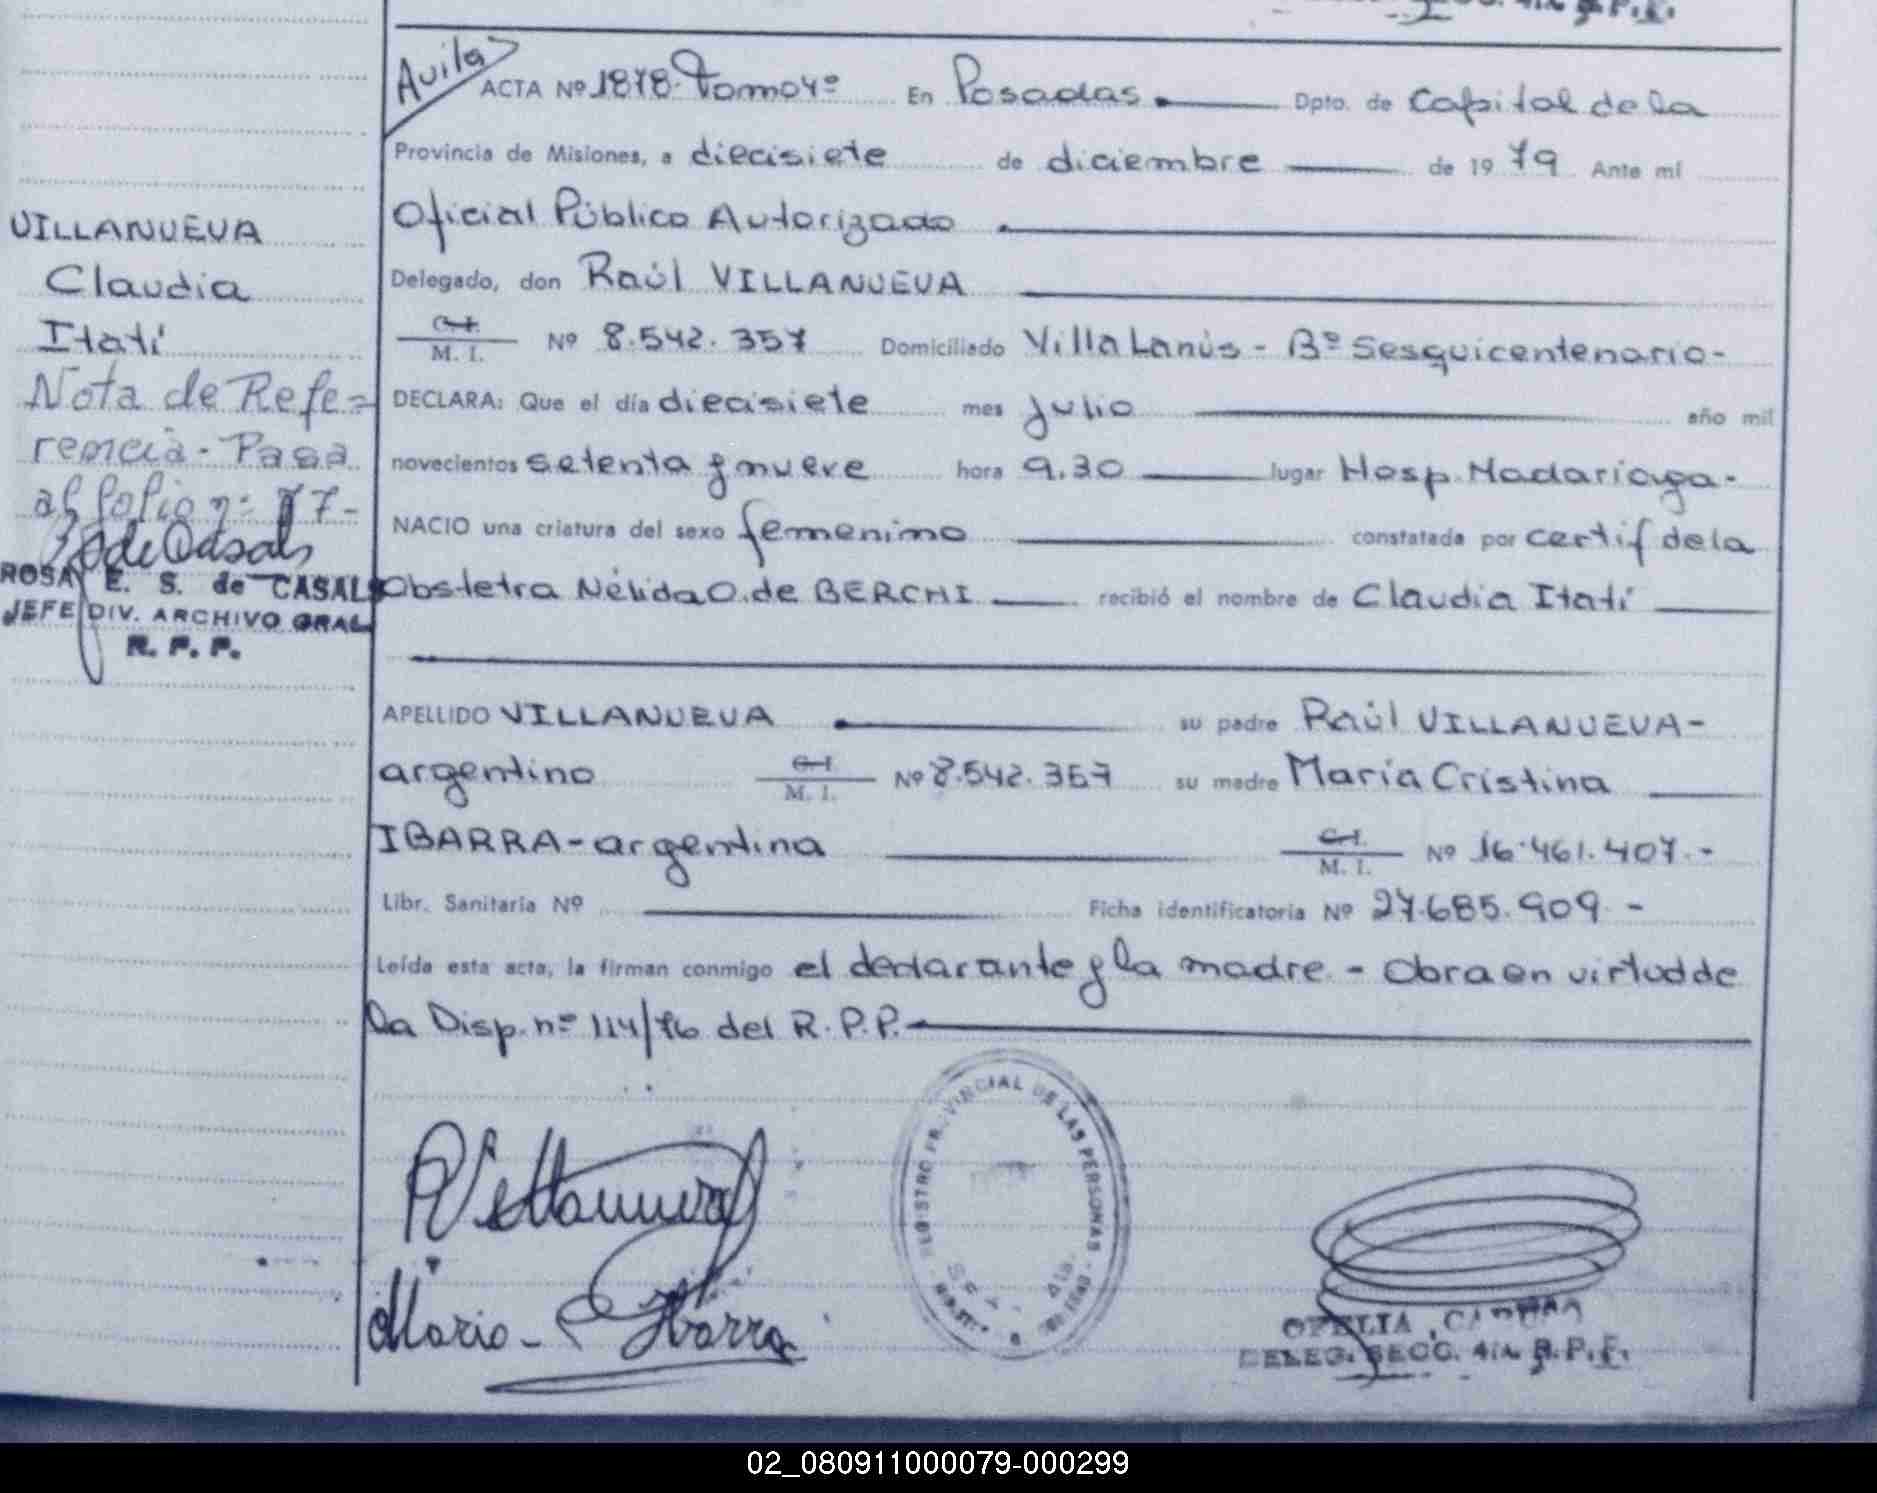 VILLANUEVA
Claudia
Itatí
Nota de Refe=
rencia - Pasa
al folio nº 77-
ROSA E. S. de CASALS
JEFE DIV. ARCHIVO GRAL
R. P. P.
Avila
ACTA Nº 1878. Tomo 4º En Posadas. Dpto. de Capital de la
Provincia de Misiones, a diecisiete de diciembre de 1979 Ante mí
Oficial Público Autorizado
Delegado, don Raúl VILLANUEVA
C.I. M. I. Nº 8.542.357 Domiciliado Villa Lanús - Bº Sesquicentenario-
DECLARA: Que el día diecisiete mes julio año mil
novecientos setenta y nueve hora 9.30 lugar Hosp. Madariaga-
NACIO una criatura del sexo femenino constatada por certif de la
Obstetra Nélida O. de BERCHI recibió el nombre de Claudia Itatí
APELLIDO VILLANUEVA su padre Raúl VILLANUEVA-
argentino C.I. M. I. Nº 8.542.357 su madre María Cristina
IBARRA-argentina C.I. M. I. Nº 16.461.407.-
Libr. Sanitaria Nº Ficha identificatoria Nº 27.685.909.-
Leída esta acta, la firman conmigo el declarante y la madre.- Obra en virtud de
la Disp. nº 114/76 del R.P.P.
REGISTRO PROVINCIAL DE LAS PERSONAS
R Villanueva
Maria - C Ibarra
OFELIA
DELEG. SECC. 4ta R.P.P.
02_080911000079-000299